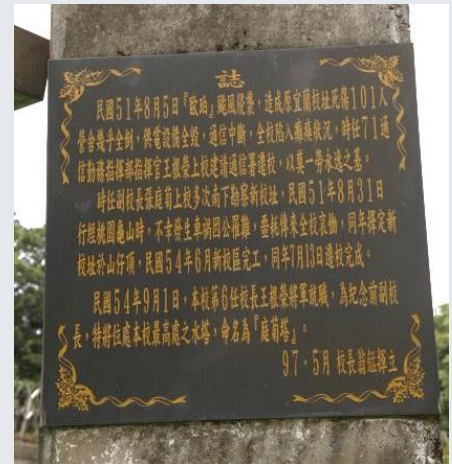 誌
民國51年8月5日『歐珀』颱風侵襲，造成原宜蘭校址死傷101人
營舍幾乎全倒，供電設備全毀，通信中斷，全校陷入癱瘓狀況，時任71通
信勤務指揮部指揮官王根榮上校建請通信署遷校，以奠一勞永逸之基。
時任副校長張庭菊上校多次南下勘察新校址，民國51年8月31日
行經桃園龜山時，不幸發生車禍因公罹難，噩耗傳來全校哀慟，同年擇定新
校址於山仔頂，民國54年6月新校區完工，同年7月13日遷校完成。
民國54年9月1日，本校第6任校長王根榮將軍就職，為紀念前副校
長，特將位處本校最高處之水塔，命名為『庭菊塔』。
97．5月 校長翁 立